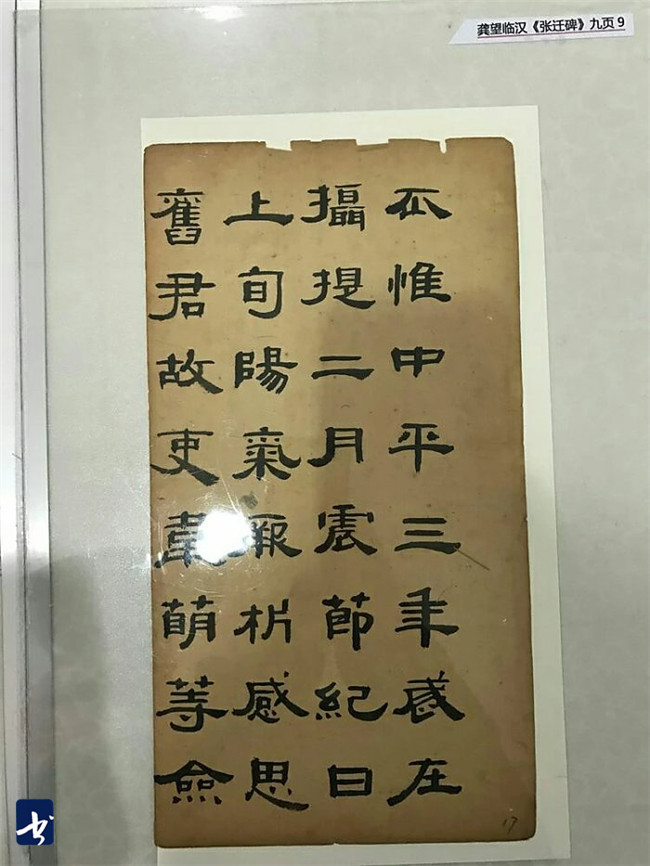 龚望临汉《张迁碑》九页 9
惟中平三年歲在
攝提二月震節紀日
上旬陽氣厥析感思
舊君故吏韋萌等僉
17
书